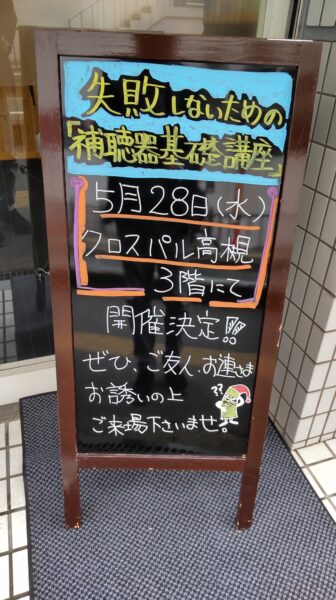 失敗しないための
「補聴器基礎講座」
5月28日(水)
クロスパル高槻
3階にて
開催決定!!
ぜひ、ご友人、お連さま
お誘いの上
ご来場下さいませ!
??